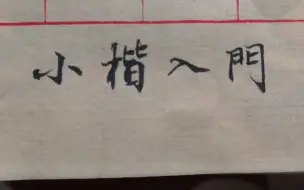 小楷入門